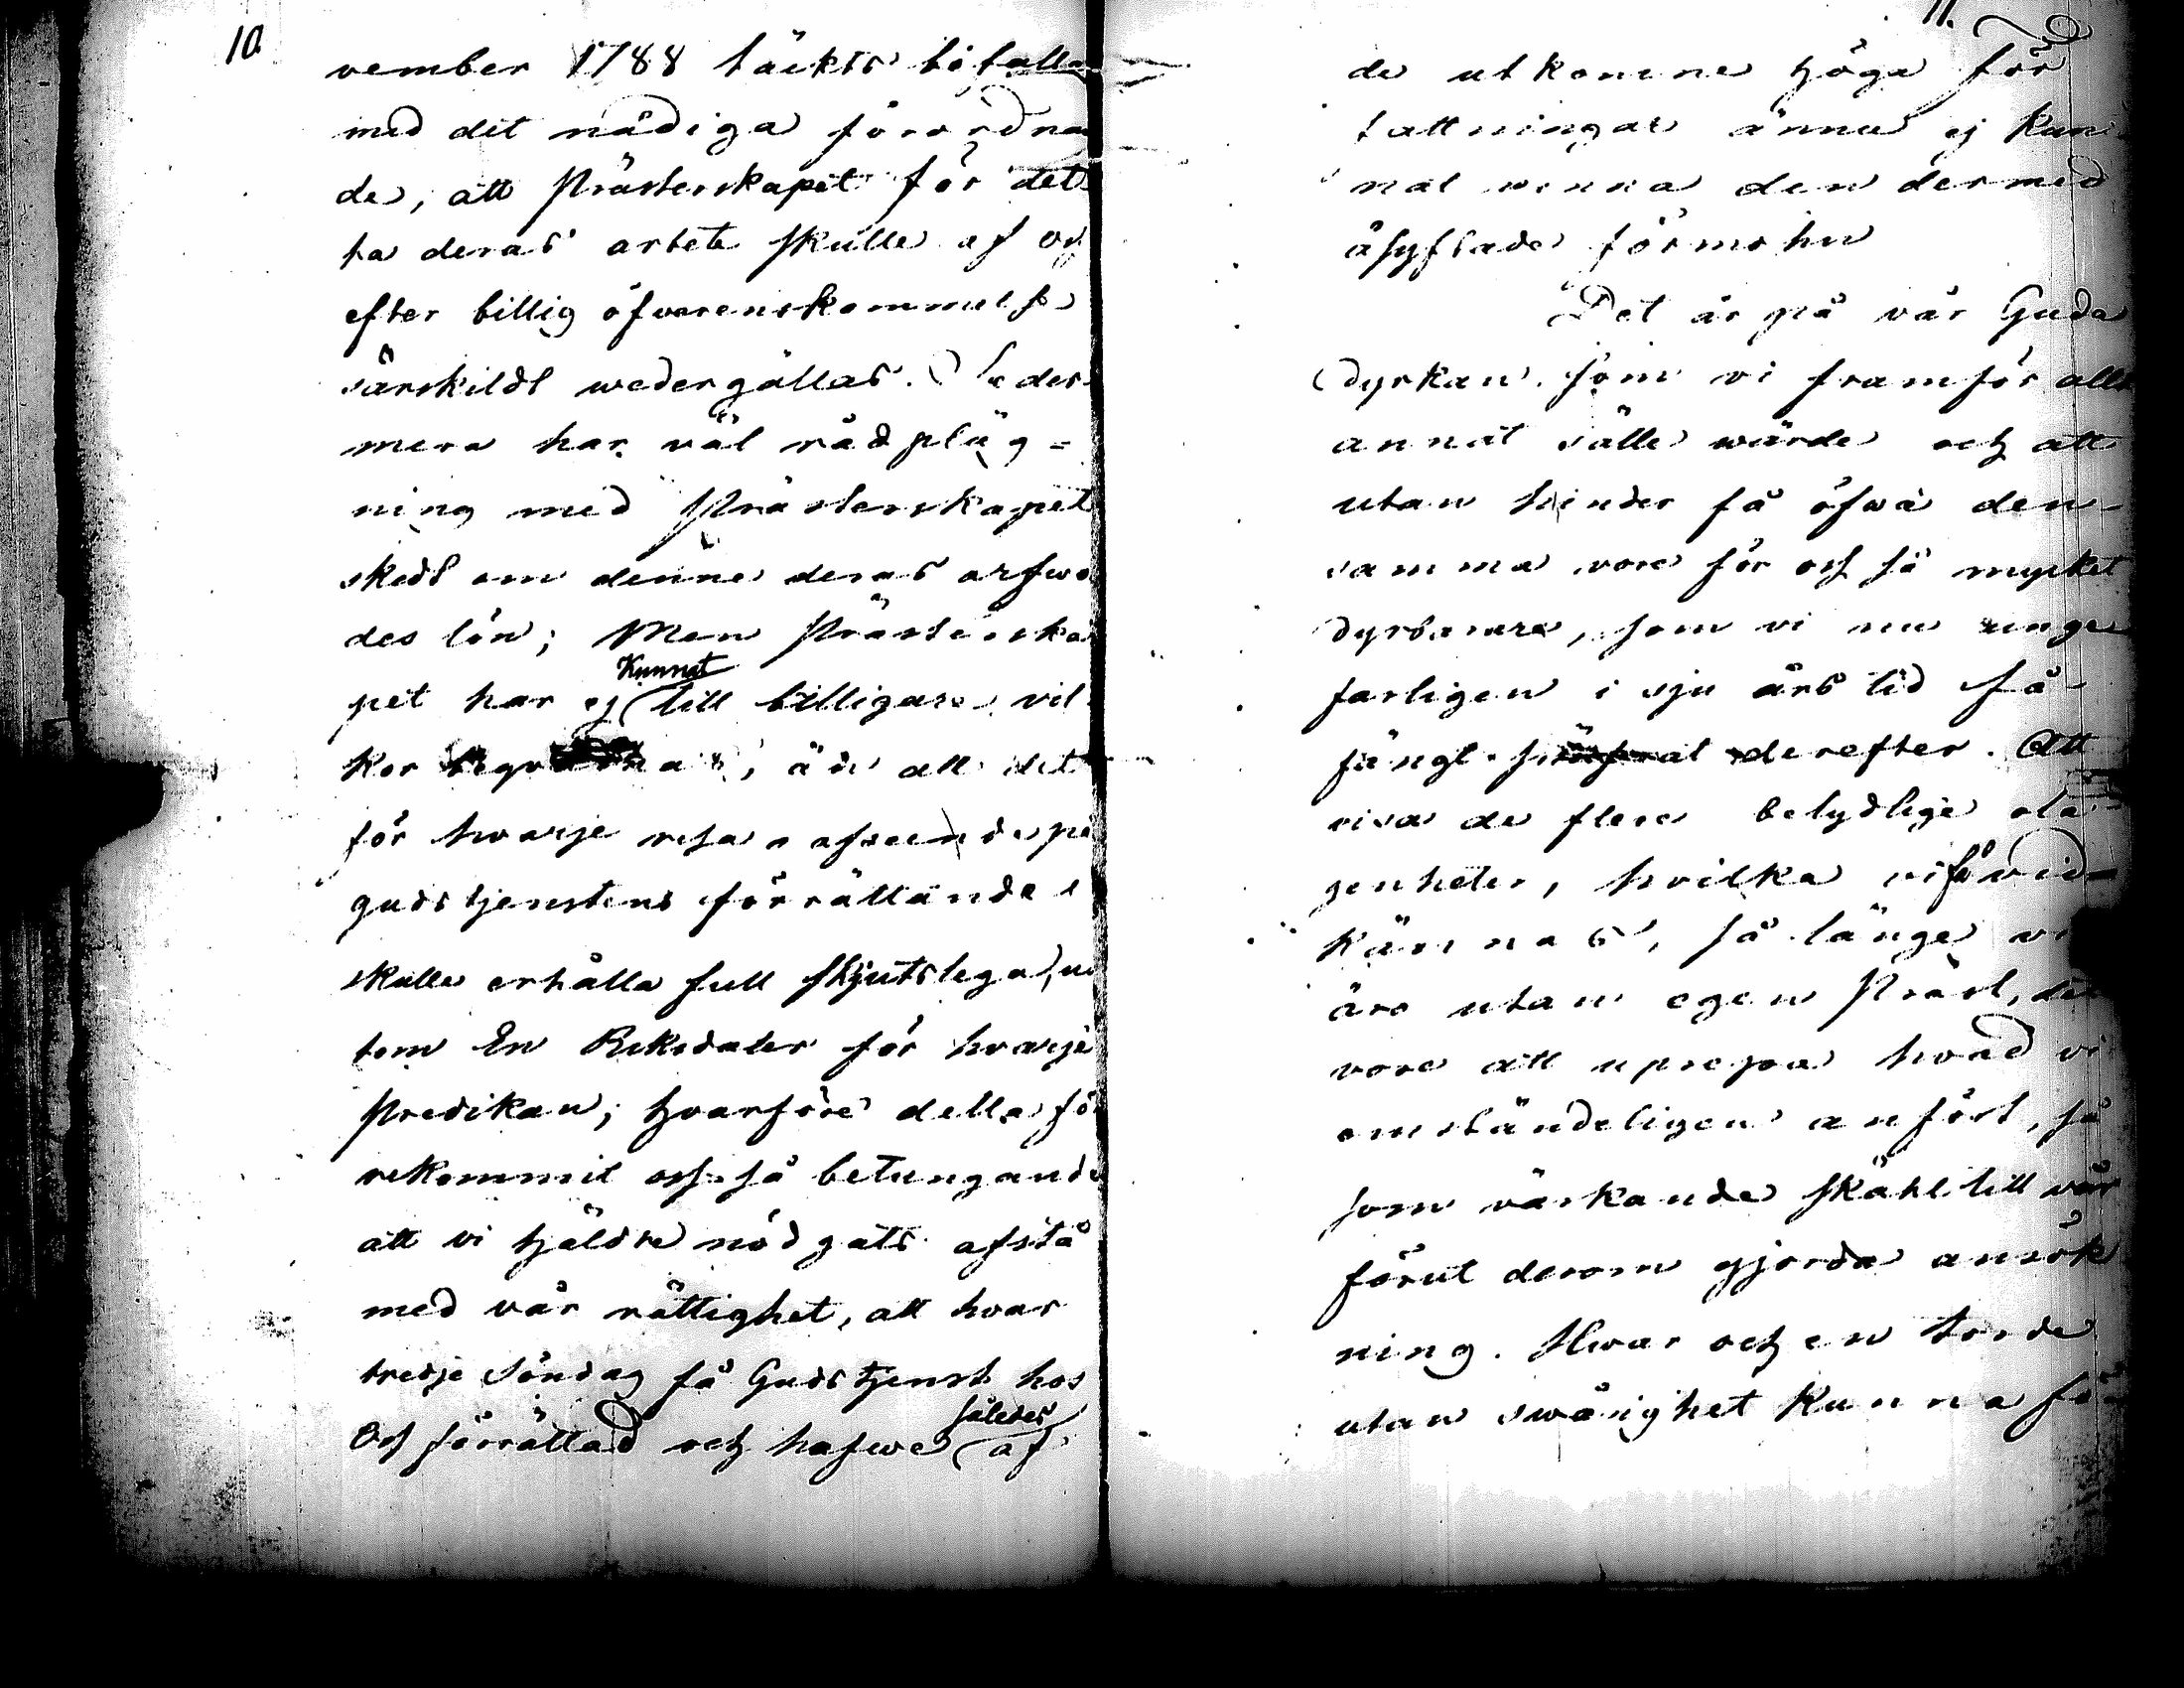 10.
vember 1788 täckts bifalla
med det nådiga förordnan
de, att Prästerskapet för det
ta deras arbete skulle af oss
efter billig öfwerenskommelse
särskildt wedergällas. Seder
mera har väl rådpläg=
ning med Prästerskapet
skedt om denne deras arfwo
des lön; Men Prästerska
pet har ej till billigare vil
Kunnat
kor än att det
för hvarje resa i afseende på
gudstjenstens förrättande
skulle erhålla full skjutslega, u
tom En Riksdaler för hvarje
Predikan; hvarföre detta fö
rekommit oss så betungande
att vi hjeldre nödgats afstå
med vår rättighet, att hvar
tredje Söndag få Gudstjenst hos
Oss förrättad och hafwe af
således
11.
de utkomne höga för
fattningar ännu ej kun
nat winna den dermed
åsyftade förmohn
Det är på vår Guda
dyrkan som vi framför allt
annat sätte wärde och att
utan hinder få öfwa den
samma vore för oss så mycket
dyrbarare, som vi nu unge
farligen i sju års tid få
fängt derefter. Att
visa de flere betydlige olä
genheter, hvilka vi få vid
kännas, så länge vi
äro utan egen Präst, det
vore att uprepa hvad vi
omständeligen anfört, så
som värkande skähl till vår
förut derom gjorda ansök
ning. Hwar och en torde
utan swårighet kunna fö